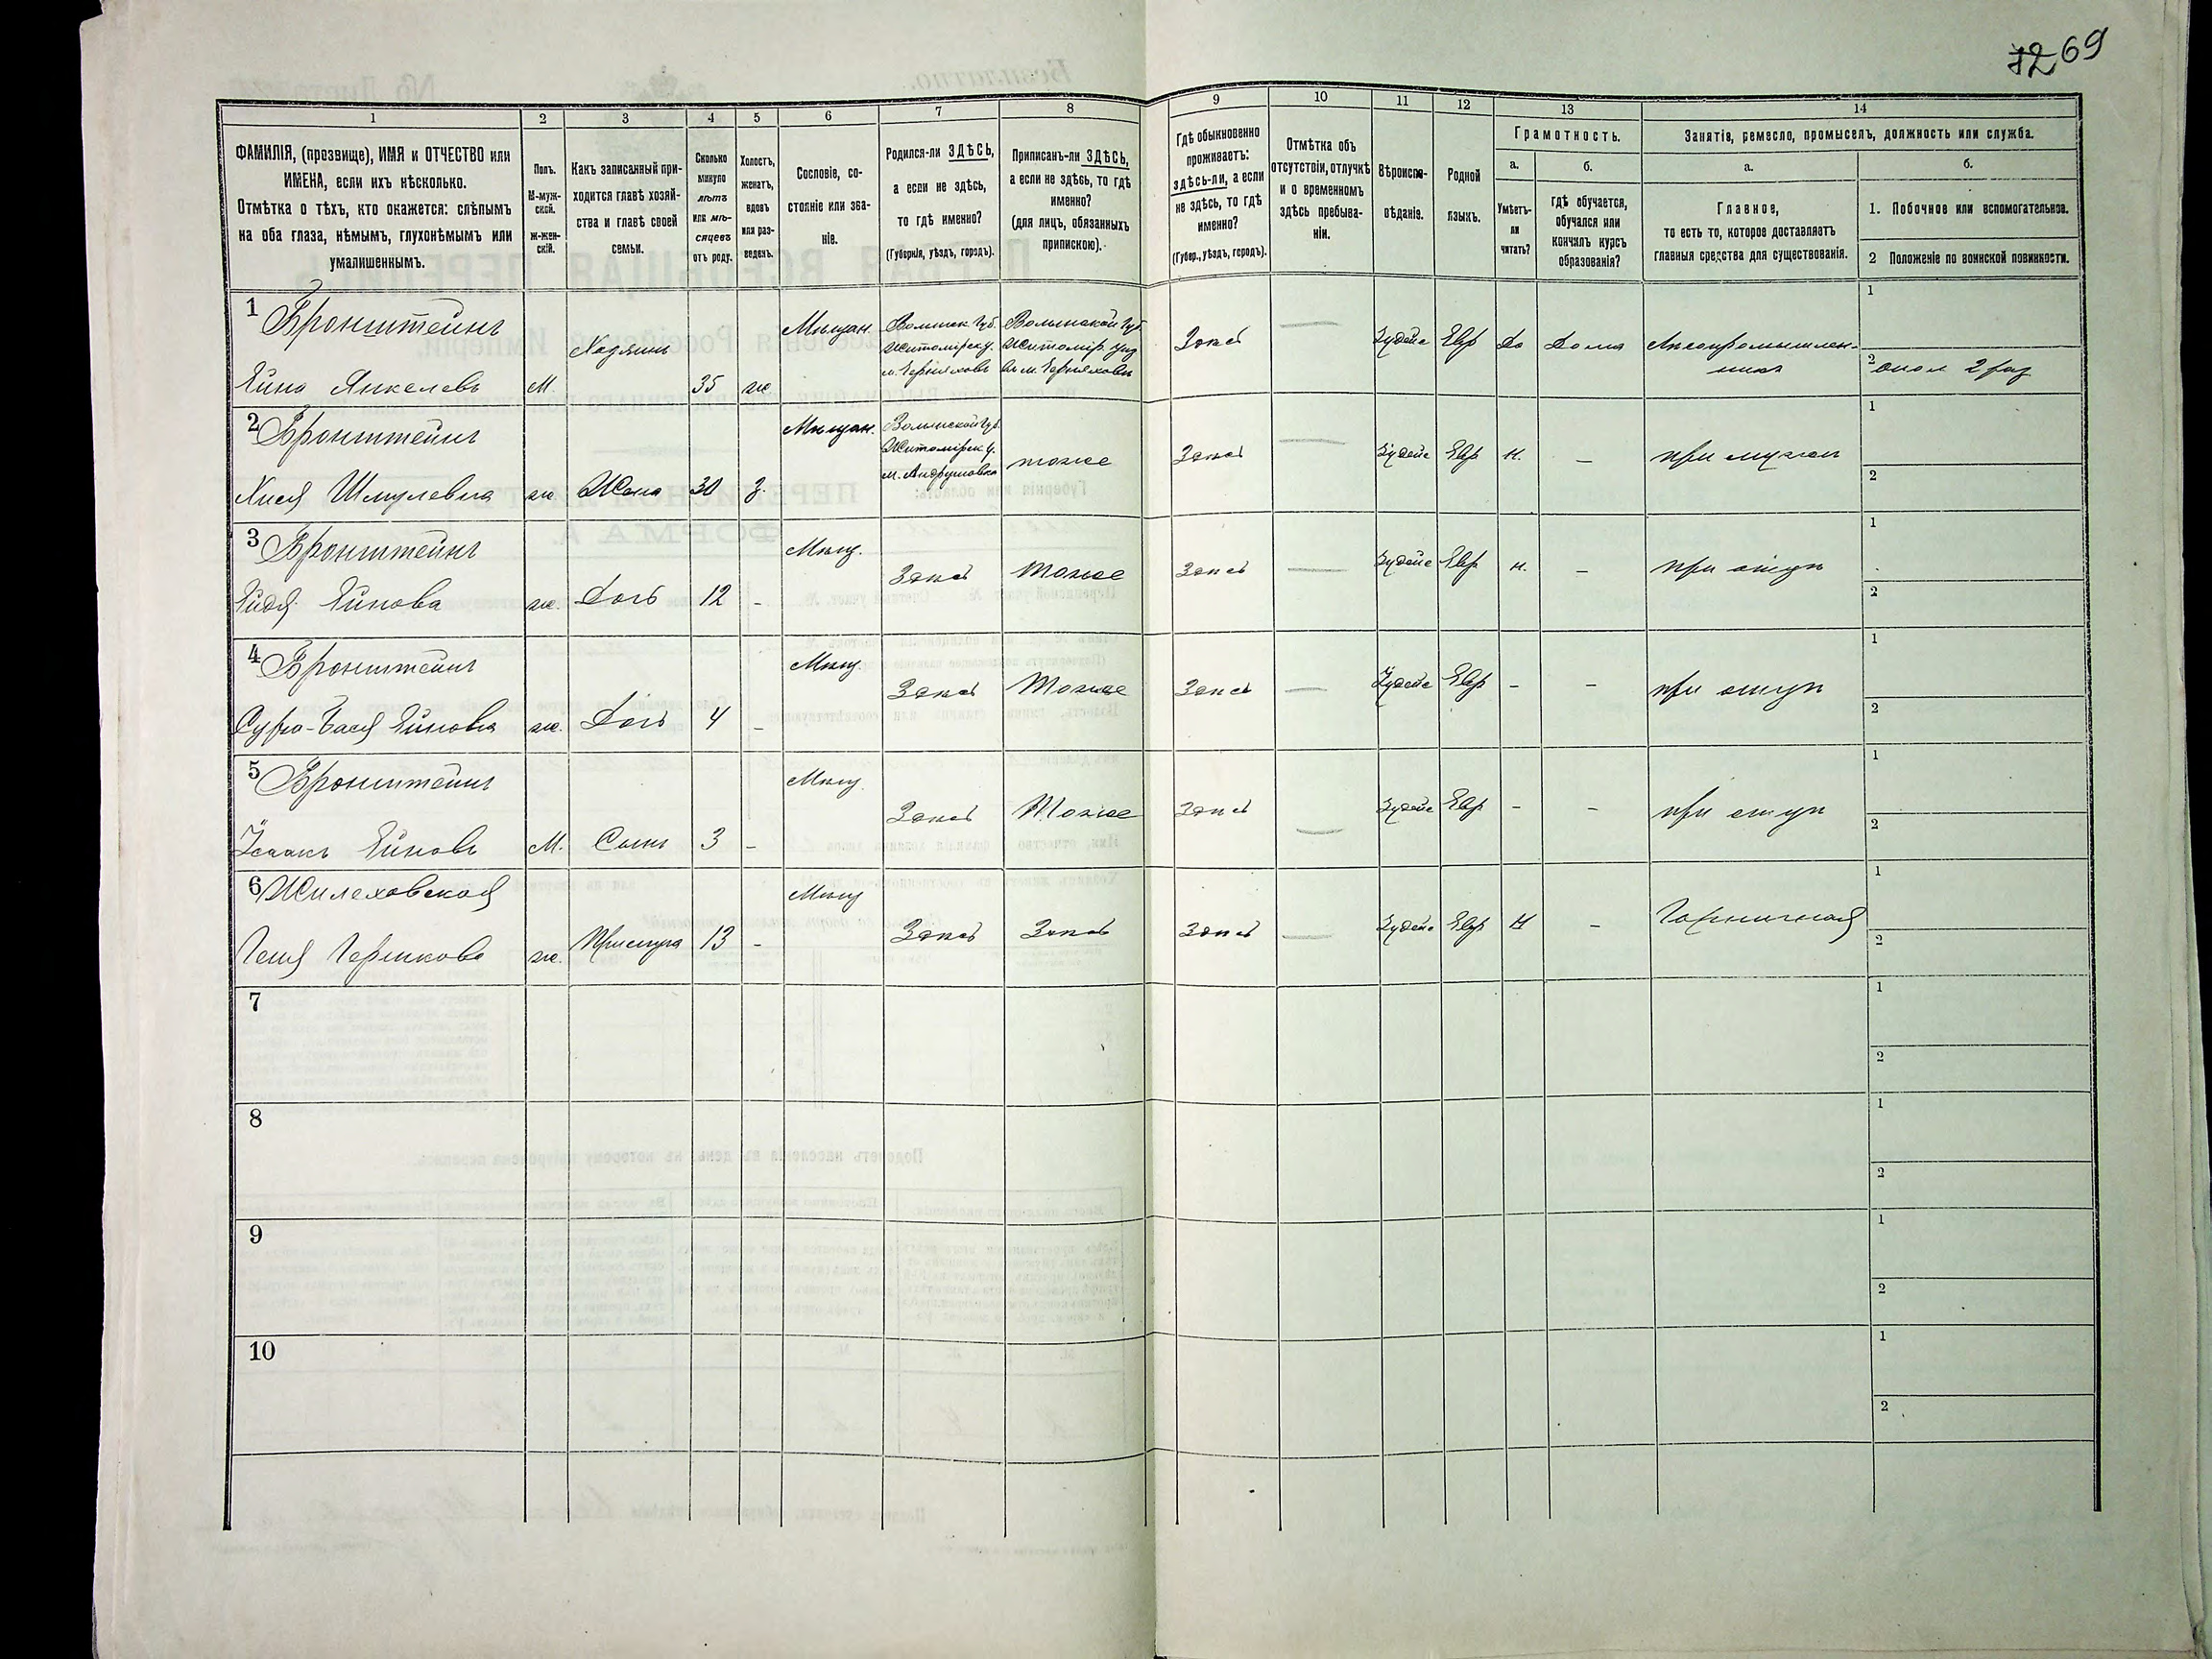 72 69
1 2 3 4 5 6 7 8 9 10 11 12 13 14
ФАМИЛІЯ, (прозвище), ИМЯ и ОТЧЕСТВО или
ИМЕНА, если ихъ нѣсколько.
Отмѣтка о тѣхъ, кто окажется: слѣпымъ
на оба глаза, нѣмымъ, глухонѣмымъ или
умалишеннымъ.
Полъ.
М-муж-
ской.
Ж-жен-
скій.
Какъ записанный при-
ходится главѣ хозяй-
ства и главѣ своей
семьи.
Сколько
минуло
лѣтъ
или мѣ-
сяцевъ
отъ роду.
Холостъ,
женатъ,
вдовъ
или раз-
веденъ.
Сословіе, со-
стояніе или зва-
ніе.
Родился-ли ЗДѢСЬ,
а если не здѣсь,
то гдѣ именно?
(Губернія, уѣздъ, городъ).
Приписанъ-ли ЗДѢСЬ,
а если не здѣсь, то гдѣ
именно?
(для лицъ, обязанныхъ
припискою).
Гдѣ обыкновенно
проживаетъ:
здѣсь-ли, а если
не здѣсь, то гдѣ
именно?
(Губер., уѣздъ, городъ).
Отмѣтка объ
отсутствіи, отлучкѣ
и о временномъ
здѣсь пребыва-
ніи.
Вѣроиспо-
вѣданіе.
Родной
языкъ.
Грамотность.
а.
Умѣетъ-
ли
читать?
б.
гдѣ обучается,
обучался или
кончилъ курсъ
образованія?
Занятіе, ремесло, промыселъ, должность или служба.
а.
Главное,
то есть то, которое доставляетъ
главныя средства для существованія.
б.
1. Побочное или вспомогательное.
2 Положеніе по воинской повинности.
1 Бронштейнъ
Ейно Янкелевъ
М.
Хозяинъ
35
же
Мѣщан.
Волынск. Губ.
Житомірск у.
м. Черняховъ
Волынской Губ
Житомір. уѣз
м. Черняховъ
Здѣсь
Іудейс
Евр
Да
Дома
Лѣсопромышлен-
никъ
1
2 2 раз
2 Бронштейнъ
Хися Шмулевна
же.
Жена
30
З.
Мѣщан.
Волынской Губ.
Житомірск у.
м. Андрушовка
тоже
Здѣсь
Іудейс
Евр
Н.
–
при мужѣ
1
2
3 Бронштейнъ
Ейнова
же.
Дочь
12
–
Мѣщ.
Здѣсь
Тоже
Здѣсь
Іудейс
Евр
Н.
–
при отцѣ
1
2
4 Бронштейнъ
Сура-Бася Ейновна
же.
Дочь
4
–
Мѣщ.
Здѣсь
Тоже
Здѣсь
Іудейс
Евр
–
–
при отцѣ
1
2
5 Бронштейнъ
Исаакъ Ейновъ
М.
Сынъ
3
–
Мѣщ.
Здѣсь
Тоже
Здѣсь
Іудейс
Евр
–
–
при отцѣ
1
2
6 Жилеховская
Геня Гершкова
же.
Прислуга
13
–
Мѣщ
Здѣсь
Здѣсь
Здѣсь
Іудейс
Евр
Н
–
Горничная
1
2
7
1
2
8
1
2
9
1
2
10
1
2